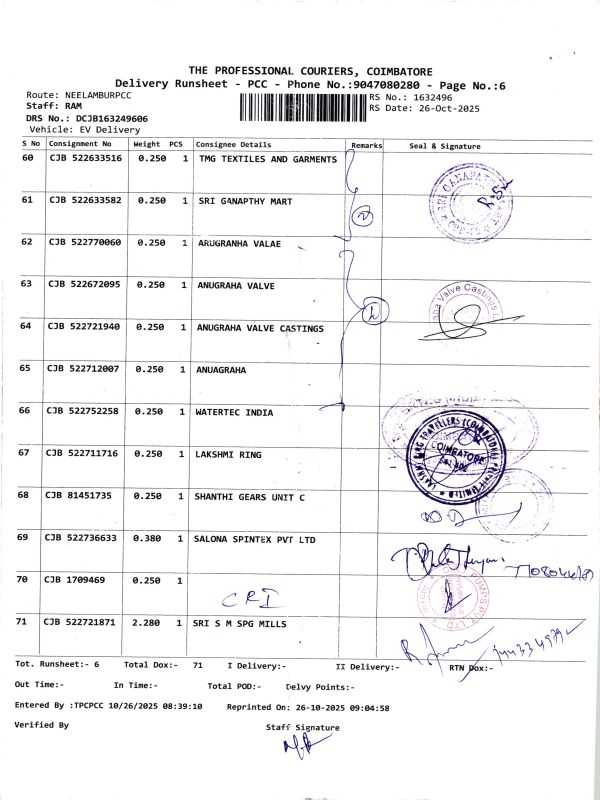 THE PROFESSIONAL COURIERS, COIMBATORE
Delivery Runsheet - PCC - Phone No.:9047080280 - Page No.:6
Route: NEELAMBURPCC RS No.: 1632496
Staff: RAM RS Date: 26-Oct-2025
DRS No.: DCJB163249606
Vehicle: EV Delivery
S No Consignment No Weight PCS Consignee Details Remarks Seal & Signature
60 CJB 522633516 0.250 1 TMG TEXTILES AND GARMENTS
61 CJB 522633582 0.250 1 SRI GANAPTHY MART
62 CJB 522770060 0.250 1 ARUGRANHA VALAE
63 CJB 522672095 0.250 1 ANUGRAHA VALVE
64 CJB 522721940 0.250 1 ANUGRAHA VALVE CASTINGS
65 CJB 522712007 0.250 1 ANUAGRAHA
66 CJB 522752258 0.250 1 WATERTEC INDIA
67 CJB 522711716 0.250 1 LAKSHMI RING
COIMBATORE
68 CJB 81451735 0.250 1 SHANTHI GEARS UNIT C
69 CJB 522736633 0.380 1 SALONA SPINTEX PVT LTD
70 CJB 1709469 0.250 1
CRI
71 CJB 522721871 2.280 1 SRI S M SPG MILLS
Tot. Runsheet:- 6 Total Dox:- 71 I Delivery:- II Delivery:- RTN Dox:-
Out Time:- In Time:- Total POD:- Delvy Points:-
Entered By :TPCPCC 10/26/2025 08:39:10 Reprinted On: 26-10-2025 09:04:58
Verified By Staff Signature